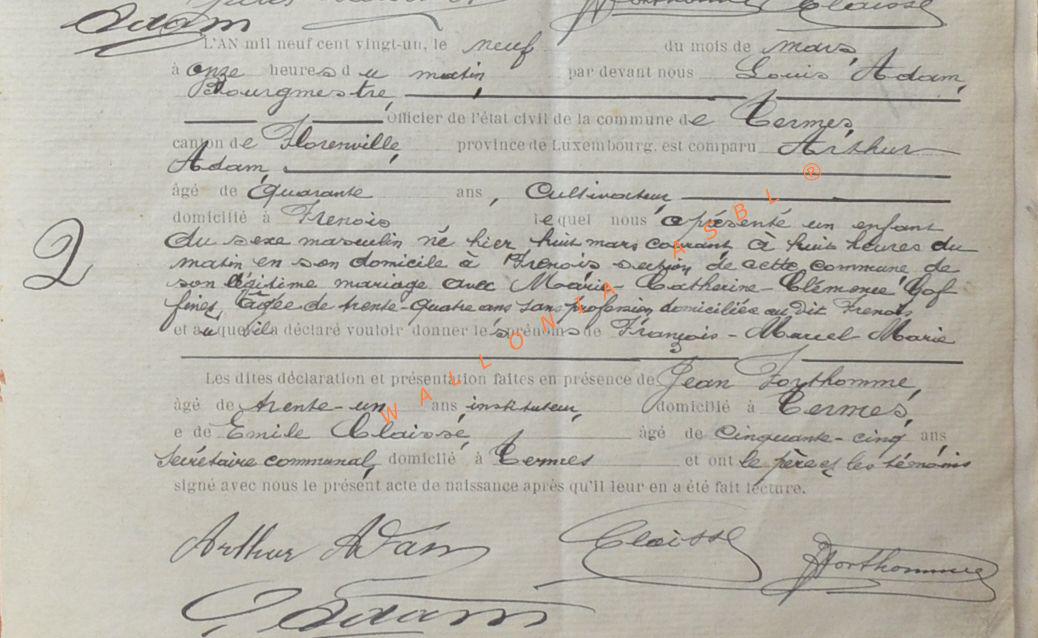 Adam Forthomme Claisse
L'AN mil neuf cent vingt-un, le neuf du mois de mars,
à onze heures du matin par devant nous Louis Adam,
Bourgmestre,
Officier de l'état civil de la commune de Termes,
canton de Florenville, province de Luxembourg. est comparu Arthur
Adam,
âgé de quarante ans, Cultivateur,
domicilié à Frenois lequel nous a présenté un enfant
du sexe masculin né hier huit mars courant à huit heures du
matin en son domicile à Frenois section de cette commune de
son légitime mariage avec Marie-Catherine-Clémence Gof
finet, âgée de trente-quatre ans sans profession domiciliée au dit Frenois
et auquel il a déclaré vouloir donner les prénoms de François-Marcel-Marie
2
Les dites déclaration et présentation faites en présence de Jean Forthomme,
âgé de trente-un ans instituteur, domicilié à Termes,
e de Emile Claisse, âgé de cinquante-cinq ans
secrétaire communal, domicilié à Termes et ont le père et les témoins
signé avec nous le présent acte de naissance après qu'il leur en a été fait lecture.
Arthur Adam Claisse JForthomme
Adam
WALLONIA ASBL ®